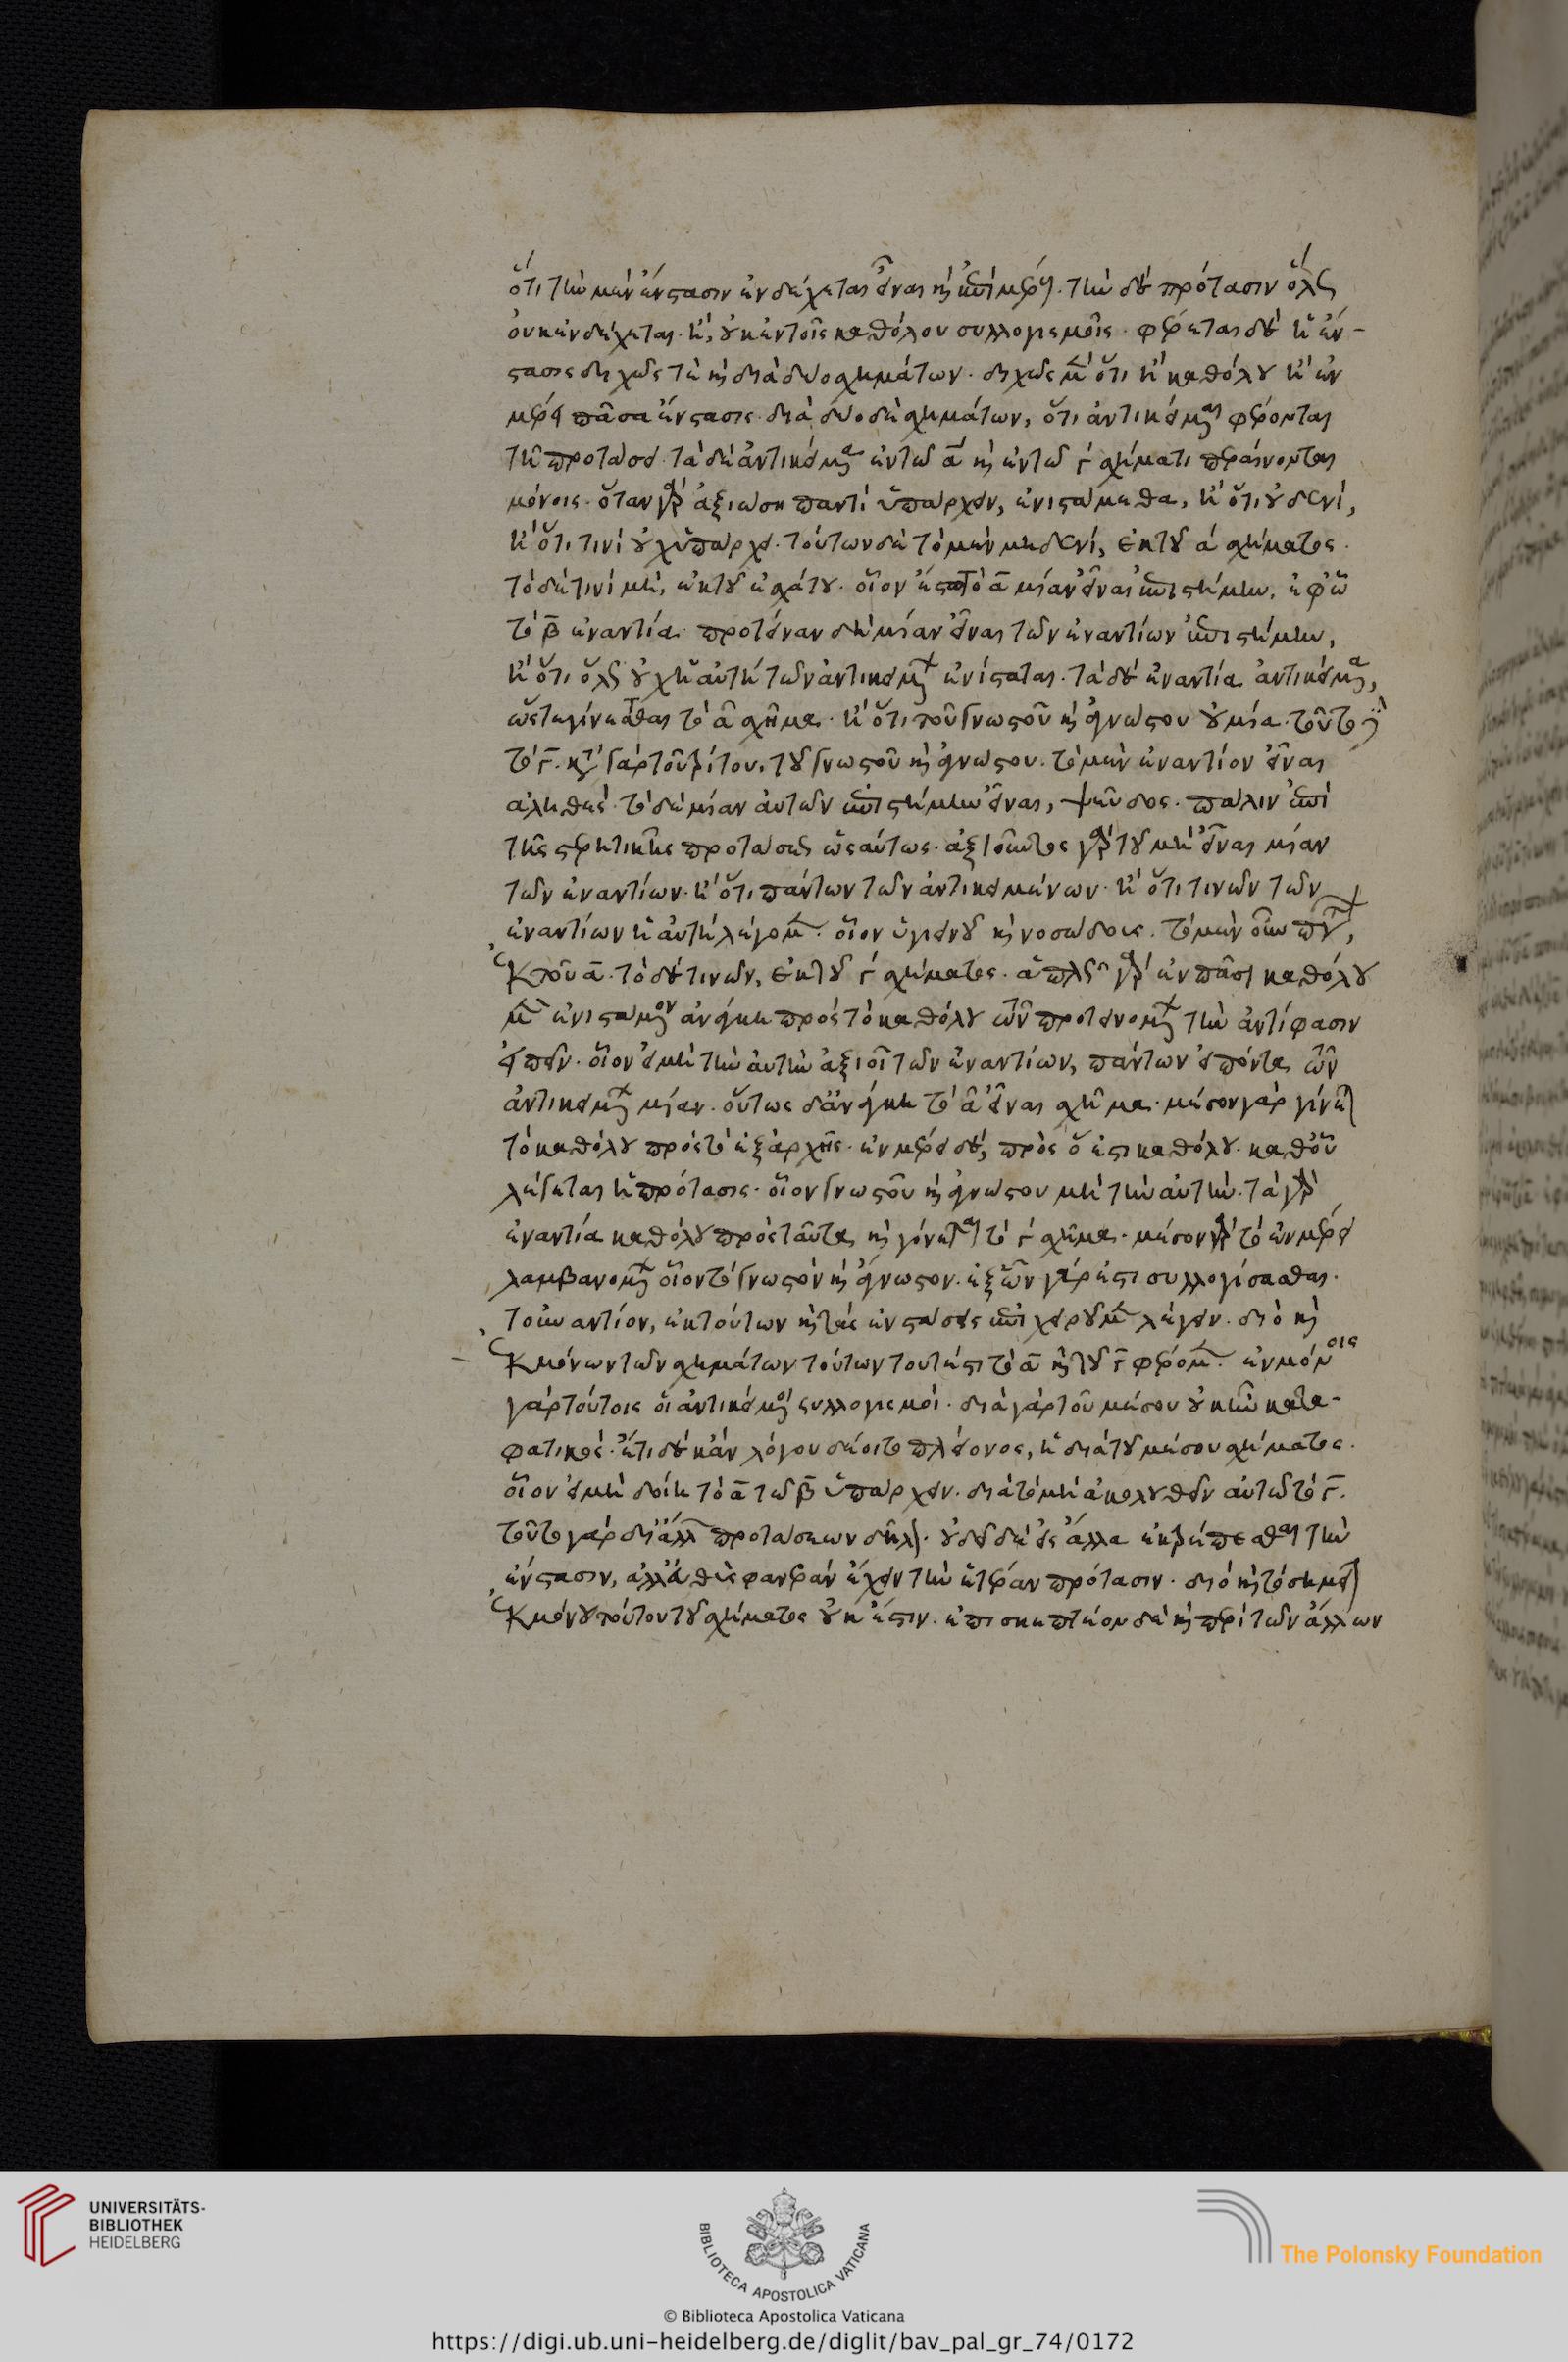 ὅτι τὴν μὲν ἔνστασιν ἐνδέχεται εἶναι καὶ ἐπὶ μέρους. τὴν δὲ πρότασιν ὅλως
οὐκ ἐνδέχεται. ἢ, οὐκ ἐν τοῖς καθόλου συλλογισμοῖς. φέρεται δὲ ἡ ἔν-
στασις διχῶς τὲ καὶ διὰ δύο σχημάτων. διχῶς μὲν ὅτι ἢ καθόλου ἢ ἐν
μέρει πᾶσα ἔνστασις. διὰ δύο δὲ σχημάτων, ὅτι ἀντικείμεναι φέρονται
τῇ προτάσει. τὰ δὲ ἀντικείμενα ἐν τῷ α̅ καὶ ἐν τῷ γ̅ σχήματι περαίνονται
μόνοις. ὅταν γὰρ ἀξιώσῃ παντὶ ὑπάρχειν, ἐνιστάμεθα, ἢ ὅτι οὐδενί,
ἢ ὅτι τινὶ οὐχ ὑπάρχει. τούτων δὲ τὸ μὲν μηδενί, ἐκ τοῦ α̅ σχήματος.
τὸ δὲ τινὶ μή, ἐκ τοῦ ἐσχάτου. οἷον ἔστω τὸ α̅ μίαν εἶναι ἐπιστήμην, ἐφ' ᾧ
τὸ β̅ ἐναντία. προτείναν δὴ μίαν εἶναι τῶν ἐναντίων ἐπιστήμην,
ἢ ὅτι ὅλως οὐχ ἡ αὐτὴ τῶν ἀντικειμένων ἐνίσταται. τὰ δὲ ἐναντία ἀντικείμενα,
ὥστε γίνεσθαι τὸ α̅ σχῆμα. ἢ ὅτι τοῦ γνωστοῦ καὶ ἀγνώστου οὐ μία. τοῦτο δὲ
τὸ γ̅. κατὰ γὰρ τοῦ τρίτου, τοῦ γνωστοῦ καὶ ἀγνώστου. τὸ μὲν ἐναντίον εἶναι
ἀληθές. τὸ δὲ μίαν αὐτῶν ἐπιστήμην εἶναι, ψεῦδος. πάλιν ἐπὶ
τῆς στερητικῆς προτάσεως ὡσαύτως. ἀξιοῦντος γὰρ τοῦ μὴ εἶναι μίαν
τῶν ἐναντίων. ἢ ὅτι πάντων τῶν ἀντικειμένων. ἢ ὅτι τινῶν τῶν
ἐναντίων ἡ αὐτὴ λέγομεν. οἷον ὑγιεινοῦ καὶ νοσώδους. τὸ μὲν οὖν πάντων,
ἐκ τοῦ α̅. τὸ δὲ τινῶν, ἐκ τοῦ γ̅ σχήματος. ἁπλῶς γὰρ ἐν πᾶσι καθόλου
μὲν ἐνιστάμενον ἀνάγκη πρὸς τὸ καθόλου τῶν προτεινομένων τὴν ἀντίφασιν
εἰπεῖν. οἷον εἰ μὴ τὴν αὐτὴν ἀξιοῖ τῶν ἐναντίων, πάντων εἰπόντα τῶν
ἀντικειμένων μίαν. οὕτως δ' ἀνάγκη τὸ α̅ εἶναι σχῆμα. μέσον γὰρ γίνεται
τὸ καθόλου πρὸς τὸ ἐξ ἀρχῆς. ἐν μέρει δὲ, πρὸς ὅ ἐστι καθόλου. καθ' οὗ
λέγεται ἡ πρότασις. οἷον γνωστοῦ καὶ ἀγνώστου μὴ τὴν αὐτήν. τὰ γὰρ
ἐναντία καθόλου πρὸς ταῦτα, καὶ γίνεται τὸ γ̅ σχῆμα. μέσον γὰρ τὸ ἐν μέρει
λαμβανόμενον οἷον τὸ γνωστὸν καὶ ἄγνωστον. ἐξ ὧν γάρ ἐστι συλλογίσασθαι
τοὐναντίον, ἐκ τούτων καὶ τὰς ἐνστάσεις ἐπιχειροῦμεν λέγειν. διὸ καὶ
ἐκ μόνων τῶν σχημάτων τούτων τουτέστι τὸ α̅ καὶ τοῦ γ̅ φέρομεν. ἐν μόνοις
γὰρ τούτοις οἱ ἀντικείμενοι συλλογισμοί. διὰ γὰρ τοῦ μέσου οὐκ ἦν κατα-
φατικός. ἔτι δὲ κἂν λόγου δέοιτο πλείονος, ἡ διὰ τοῦ μέσου σχήματος.
οἷον εἰ μὴ δοίη τὸ α̅ τῷ β̅ ὑπάρχειν. διὰ τὸ μὴ ἀκολουθεῖν αὐτῷ τὸ γ̅.
τοῦτο γὰρ δι' ἄλλων προτάσεων δῆλον. οὐ δεῖ δὲ εἰς ἄλλα ἐκτρέπεσθαι τὴν
ἔνστασιν, ἀλλ' εὐθὺς φανερὰν ἔχειν τὴν ἑτέραν πρότασιν. διὸ καὶ τὸ σημεῖον
ἐκ μόνου τούτου τοῦ σχήματος οὐκ ἔστιν. ἐπισκεπτέον δὲ καὶ περὶ τῶν ἄλλων
UNIVERSITÄTS-
BIBLIOTHEK
HEIDELBERG
BIBLIOTECA APOSTOLICA VATICANA
The Polonsky Foundation
© Biblioteca Apostolica Vaticana
https://digi.ub.uni-heidelberg.de/diglit/bav_pal_gr_74/0172